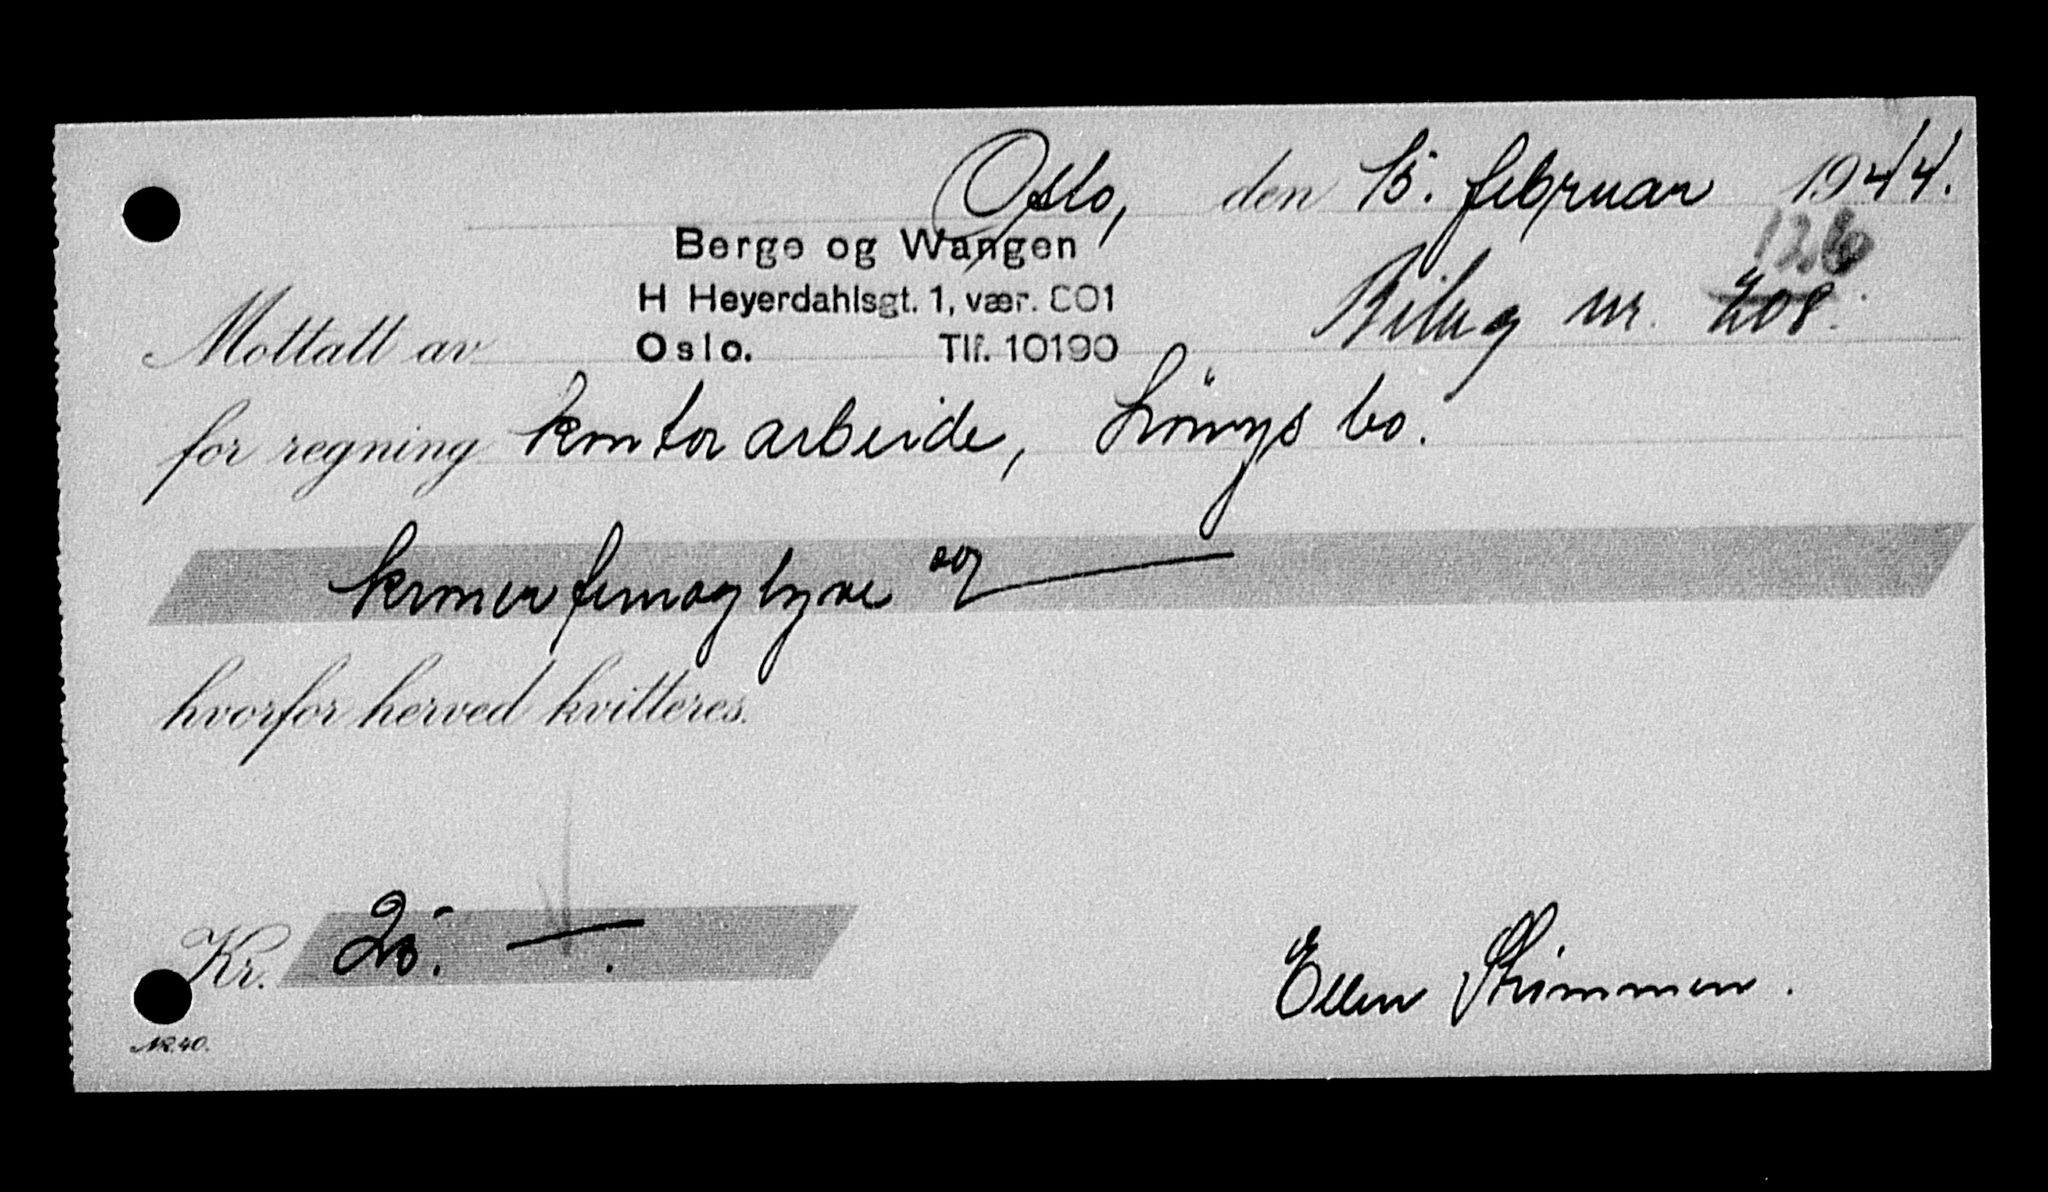 Oslo, den 15. februar 1944.
Berge og Wangen
126
H Heyerdahlsgt. 1, vær. 801
Bilag nr. 208.
Mottatt av Oslo. Tlf. 10190
for regning kontorarbeide, bo.
kroner femogtyve og
hvorfor herved kvitteres.
Kr. 25. —.
Ellen Strømmen.
NR. 40.